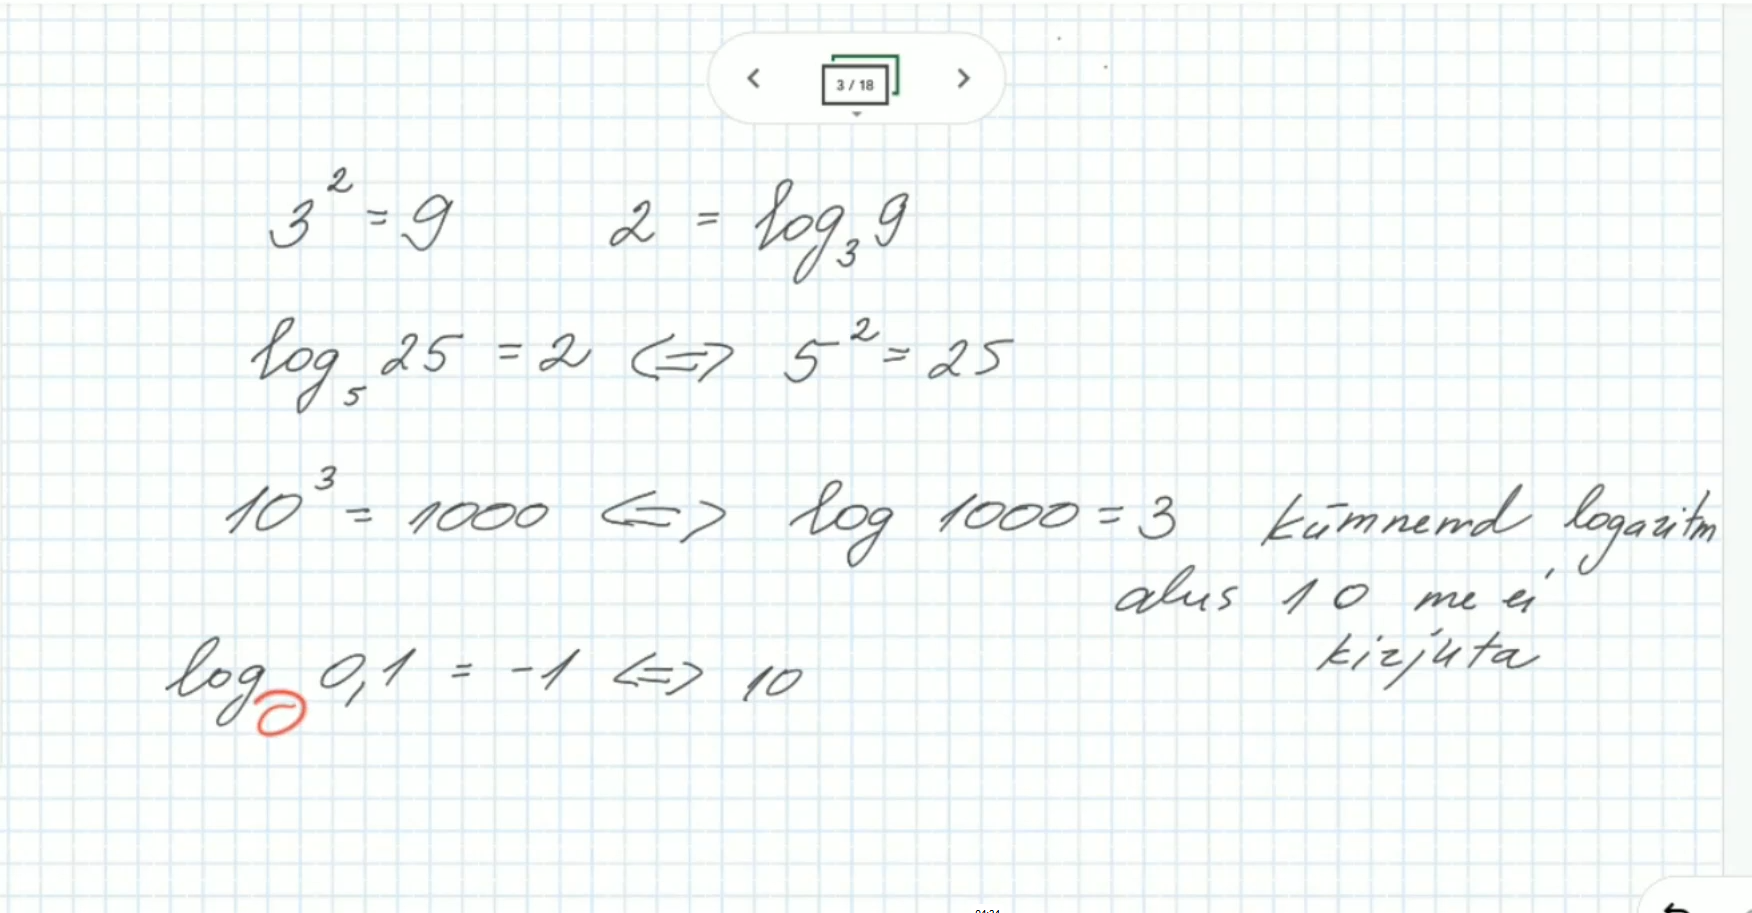 3 / 18
3² = 9 2 = log₃ 9
log₅ 25 = 2 <=> 5² = 25
10³ = 1000 <=> log 1000 = 3 kümnend logaritm
alus 10 me ei
kirjuta
log 0,1 = -1 <=> 10